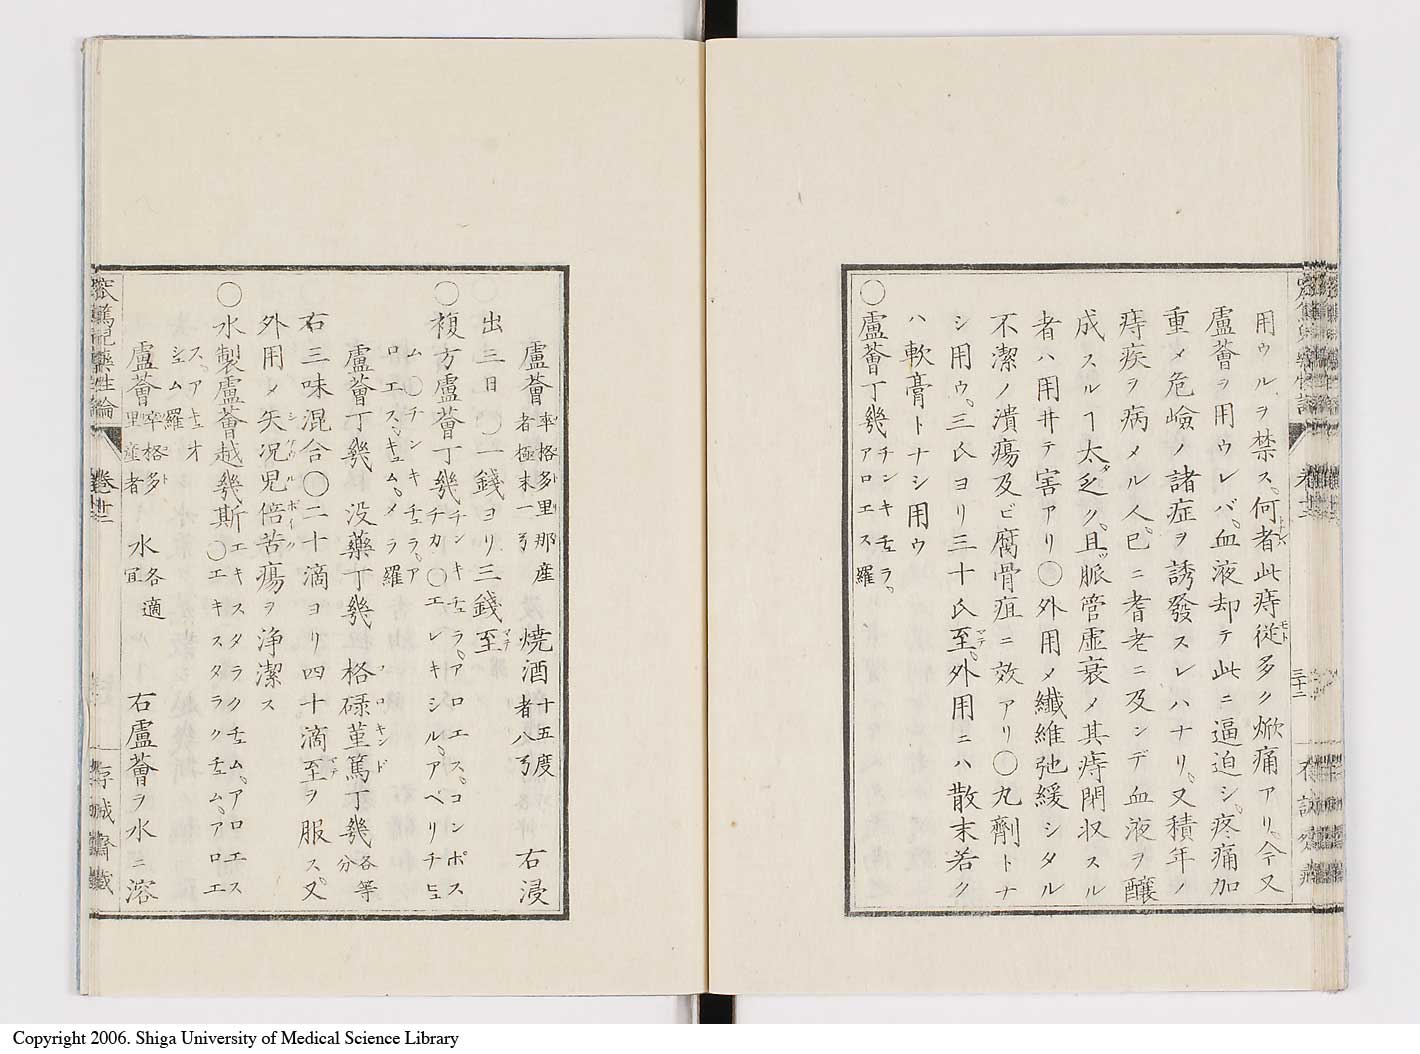 用ウルヲ禁ス。何者此痔従多ク焮痛アリ。今又
盧薈ヲ用ウレバ。血液却テ此ニ逼迫シ。疼痛加
重メ危嶮ノ諸症ヲ誘發スレハナリ。又積年ノ
痔疾ヲ病メル人。已ニ耆老ニ及ンデ血液ヲ釀
成スルヿ太ダ乏ク。且ツ脈管虚衰メ其痔閉収スル
者ハ用井テ害アリ〇外用メ纖維弛緩シタル
不潔ノ潰瘍及ビ腐骨疽ニ效アリ〇丸劑トナ
シ用ウ。三氏ヨリ三十氏至。マテ外用ニハ散末若ク
ハ軟膏トナシ用ウ
〇盧薈丁幾チンキチュラ。アロエス羅
盧薈率格多里那産者極末一ヶ 焼酒十五度者八ヶ 右浸
出三日〇一錢ヨリ三錢至マテ
〇複方盧薈丁幾チンキチュラ。アロエス。コンポスチカ〇エレキシル。アベリチヒュ
ム〇チンキチュラ。アロエス。キュム。メラ羅
盧薈丁幾 没藥丁幾 格碌菫篤丁幾各等分
右三味混合〇二十滴ヨリ四十滴至マテヲ服ス。又
外用メ矢况児倍苦瘍ヲ浄潔ス
〇水製盧薈越幾斯〇エキスタラクチュム。アロエス〇エキスタラクチュム。アロエ
ス。アキュオシュム羅
盧薈率格多里産者 水各適宜 右盧薈ヲ水ニ溶
藥性論
卷十二
存誠齋藏
卷十二
三十二